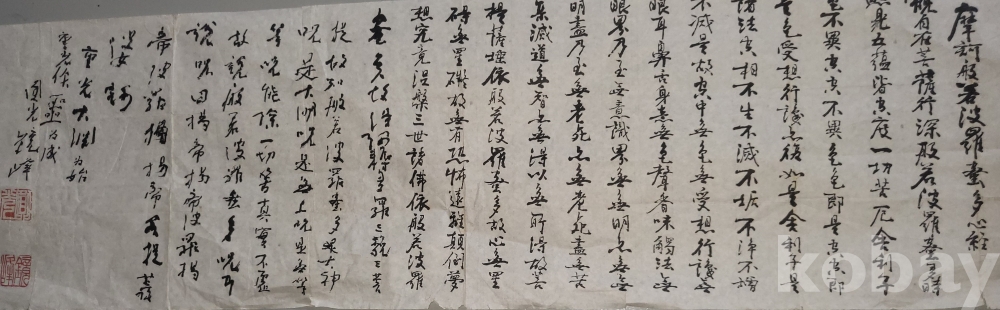 摩訶般若波羅蜜多心經
觀自在菩薩行深般若波羅蜜多時
照見五蘊皆空度一切苦厄舍利子
色不異空空不異色色即是空空即
是色受想行識亦復如是舍利子是
諸法空相不生不滅不垢不淨不增
不減是故空中無色無受想行識無
眼耳鼻舌身意無色聲香味觸法無
眼界乃至無意識界無無明亦無無
明盡乃至無老死亦無老死盡無苦
集滅道無智亦無得以無所得故菩
提薩埵依般若波羅蜜多故心無罣
礙無罣礙故無有恐怖遠離顛倒夢
想究竟涅槃三世諸佛依般若波羅
蜜多故得阿耨多羅三藐三菩
提故知般若波羅蜜多是大神
呪是大明呪是無上呪是無等
等呪能除一切苦真實不虛
故說般若波羅蜜多呪即
說呪曰揭帝揭帝波羅揭
帝波羅僧揭帝菩提薩
婆訶
圓光 鏡峰
kobay